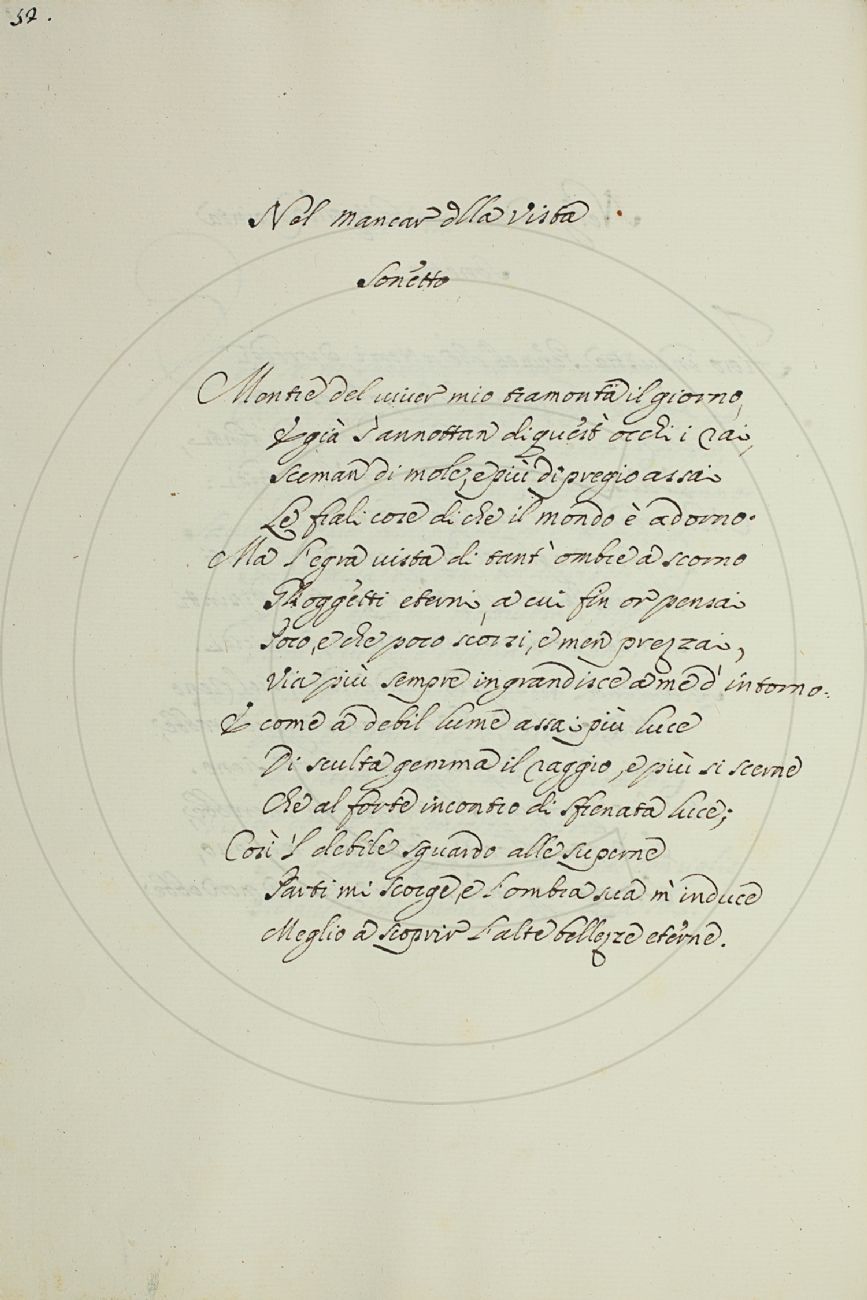 52.
Nel mancar dlla vista
Sonetto
Mentre del viver mio tramonta il giorno,
E già s'annottan di quest' occhi i rai,
Sceman di mole, e più di pregio assai
Le frali cose di che il mondo è adorno.
Ma l'egra vista di tant' ombre a scorno
Gli oggetti eterni, a cui fin or pensai
Poco, e che poco scorsi, e men prezzai,
Via più sempre ingrandisce a me d' intorno.
E come a debil lume assai più luce
Di sculta gemma il raggio, e più si scerne
Che al forte incontro di sfrenata luce;
Così 'l debile sguardo alle superne
Parti mi scorge, e l'ombra sua m' induce
Meglio a scoprir l'alte bellezze eterne.